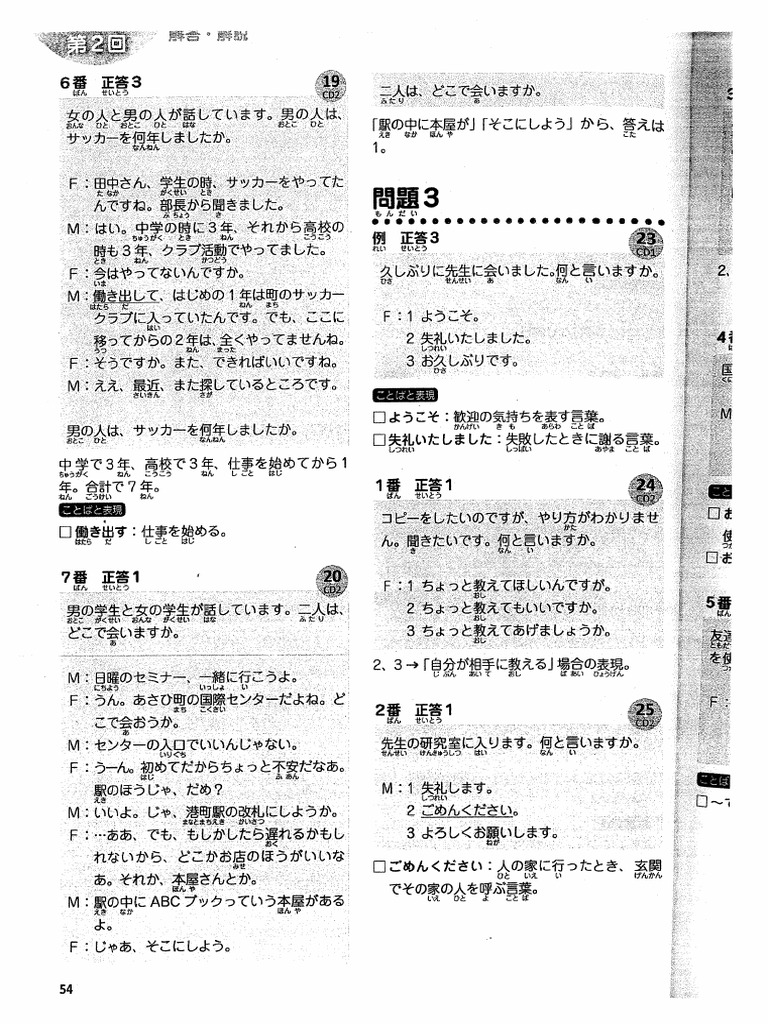 第2回 解答・解説
6番 正答3
19
CD2
女の人と男の人が話しています。男の人は、
サッカーを何年しましたか。
F：田中さん、学生の時、サッカーをやってた
んですね。部長から聞きました。
M：はい。中学の時に3年、それから高校の
時も3年、クラブ活動でやってました。
F：今はやってないんですか。
M：働き出して、はじめの1年は町のサッカー
クラブに入っていたんです。でも、ここに
移ってからの2年は、全くやってませんね。
F：そうですか。また、できればいいですね。
M：ええ、最近、また探しているところです。
男の人は、サッカーを何年しましたか。
中学で3年、高校で3年、仕事を始めてから1
年。合計で7年。
ことばと表現
□働き出す：仕事を始める。
7番 正答1
20
CD2
男の学生と女の学生が話しています。二人は、
どこで会いますか。
M：日曜のセミナー、一緒に行こうよ。
F：うん。あさひ町の国際センターだよね。ど
こで会おうか。
M：センターの入口でいいんじゃない。
F：うーん。初めてだからちょっと不安だなあ。
駅のほうじゃ、だめ？
M：いいよ。じゃ、港町駅の改札にしようか。
F：…ああ、でも、もしかしたら遅れるかもし
れないから、どこかお店のほうがいいな
あ。それか、本屋さんとか。
M：駅の中にABCブックっていう本屋がある
よ。
F：じゃあ、そこにしよう。
二人は、どこで会いますか。
「駅の中に本屋が」「そこにしよう」から、答えは
1。
問題3
もんだい
例 正答3
23
CD1
久しぶりに先生に会いました。何と言いますか。
F：1 ようこそ。
2 失礼いたしました。
3 お久しぶりです。
ことばと表現
□ようこそ：歓迎の気持ちを表す言葉。
□失礼いたしました：失敗したときに謝る言葉。
1番 正答1
24
CD2
コピーをしたいのですが、やり方がわかりませ
ん。聞きたいです。何と言いますか。
F：1 ちょっと教えてほしいんですが。
2 ちょっと教えてもいいですか。
3 ちょっと教えてあげましょうか。
2、3→「自分が相手に教える」場合の表現。
2番 正答1
25
CD2
先生の研究室に入ります。何と言いますか。
M：1 失礼します。
2 ごめんください。
3 よろしくお願いします。
□ごめんください：人の家に行ったとき、玄関
でその家の人を呼ぶ言葉。
2、
4番
M
ことば
□お
□お
5番
を使
F：
ことば
□〜て
54